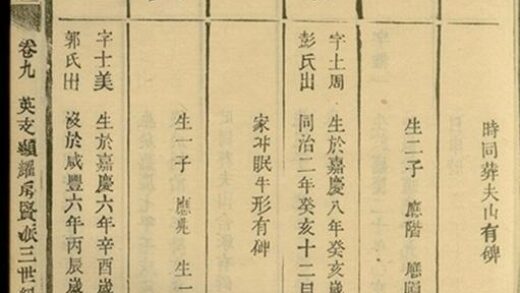 時同葬夫山有碑
生二子 應階 應
字士周 生於嘉慶八年癸亥歲
彭氏出 同治二年癸亥十二月
家冲眠牛形有碑
生一子 應 生一
字士美 生於嘉慶六年辛酉歲
郭氏出 沒於咸豐六年丙辰歲
卷九 英支顯耀房賢派三世紀